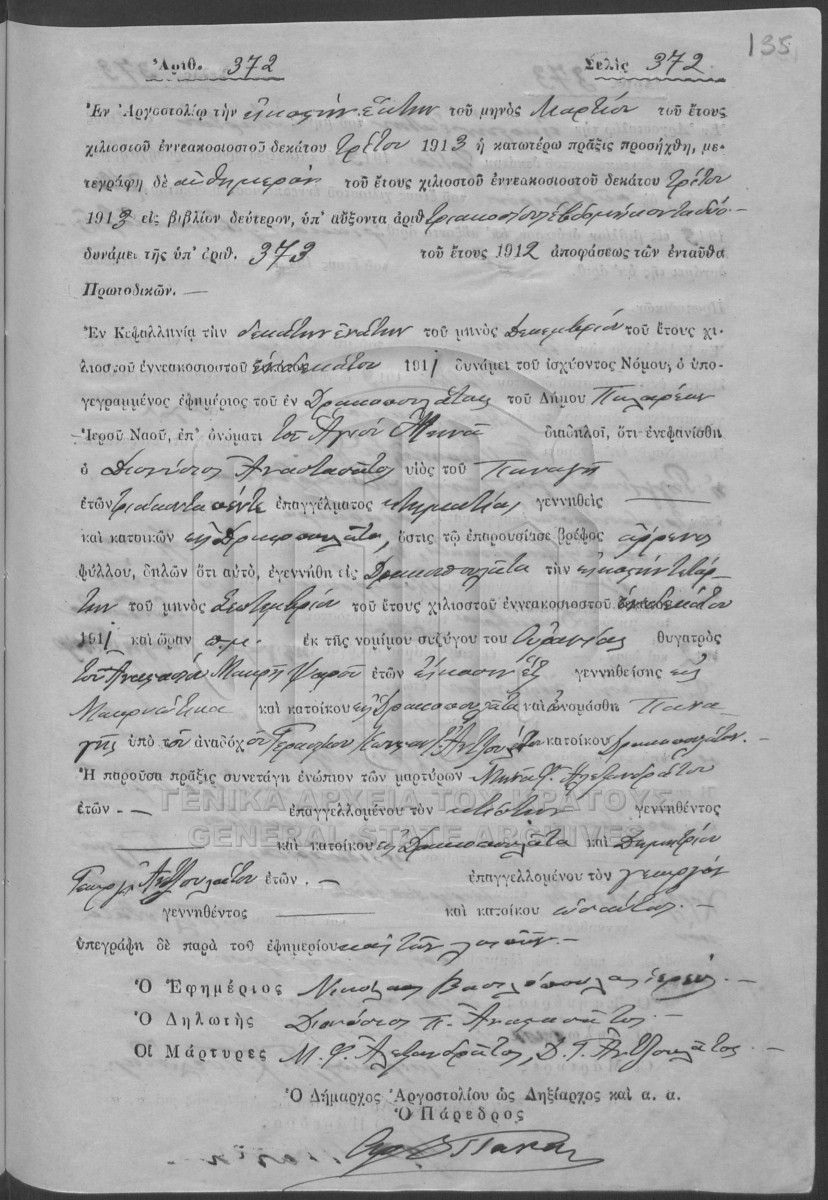 135
Ἀριθ. 372 Σελὶς 372
Ἐν Ἀργοστολίῳ τὴν εἰκοστὴν ἕκτην τοῦ μηνὸς Μαρτίου τοῦ ἔτους
χιλιοστοῦ ἐννεακοσιοστοῦ δεκάτου τρίτου 1913 ἡ κατωτέρω πρᾶξις προσήχθη, με-
τεγράφη δὲ αὐθημερὸν τοῦ ἔτους χιλιοστοῦ ἐννεακοσιοστοῦ δεκάτου τρίτου
1913 εἰς βιβλίον δεύτερον, ὑπ' αὔξοντα ἀριθ τριακοσιοστὸν ἑβδομήκοντα δύο.—
δυνάμει τῆς ὑπ' ἀριθ. 373 τοῦ ἔτους 1912 ἀποφάσεως τῶν ἐνταῦθα
Πρωτοδικῶν.—
Ἐν Κεφαλληνίᾳ τὴν δεκάτην ἐνάτην τοῦ μηνὸς Δεκεμβρίου τοῦ ἔτους χι-
λιοστοῦ ἐννεακοσιοστοῦ ἑνδεκάτου 1911 δυνάμει τοῦ ἰσχύοντος Νόμου, ὁ ὑπο-
γεγραμμένος ἐφημέριος τοῦ ἐν Δρακοπουλάτοις τοῦ Δήμου Παλαρέων
Ἱεροῦ Ναοῦ, ἐπ' ὀνόματι τοῦ Ἁγίου Μηνᾶ διαδηλοῖ, ὅτι ἐνεφανίσθη
ὁ Διονύσιος Ἀναστασᾶτος υἱὸς τοῦ Παναγῆ
ἐτῶν τριάκοντα πέντε ἐπαγγέλματος κτηματίας γεννηθεὶς —
καὶ κατοικῶν εἰς Δρακοπουλᾶτα, ὅστις τῷ ἐπαρουσίασε βρέφος ἄρρενος
φύλλου, δηλῶν ὅτι αὐτό, ἐγεννήθη εἰς Δρακοπουλᾶτα τὴν εἰκοστὴν τετάρ-
την τοῦ μηνὸς Σεπτεμβρίου τοῦ ἔτους χιλιοστοῦ ἐννεακοσιοστοῦ ἑνδεκάτου
1911 καὶ ὥραν π.μ. ἐκ τῆς νομίμου συζύγου του Οὐρανίας θυγατρὸς
τοῦ Μακρῆ ἐτῶν εἴκοσιν ἓξ γεννηθείσης εἰς
Μακρυώτικα καὶ κατοίκου εἰς Δρακοπουλᾶτα καὶ ὠνομάσθη Πανα-
γῆς ὑπὸ τοῦ ἀναδόχου Γερασίμου Ἀντζουλάτου κατοίκου Δρακοπουλάτων.—
Ἡ παροῦσα πρᾶξις συνετάγη ἐνώπιον τῶν μαρτύρων Μηνᾶ Φ. Ἀλεξανδράτου
ἐτῶν — ἐπαγγελλομένου τὸν κτίστην γεννηθέντος
— καὶ κατοίκου εἰς Δρακοπουλᾶτα καὶ Δημητρίου
Γεωργ. Ἀντζουλάτου ἐτῶν .— ἐπαγγελλομένου τὸν γεωργὸν
γεννηθέντος — καὶ κατοίκου ὡσαύτως.—
ὑπεγράφη δὲ παρὰ τοῦ ἐφημερίου καὶ τῶν λοιπῶν.—
ΓΕΝΙΚΑ ΑΡΧΕΙΑ ΤΟΥ ΚΡΑΤΟΥΣ
GENERAL STATE ARCHIVES
Ὁ Ἐφημέριος Νικόλαος Βασιλόπουλος ἱερεύς.—
Ὁ Δηλωτὴς Διονύσιος Π. Ἀναστασᾶτος.—
Οἱ Μάρτυρες Μ. Φ. Ἀλεξανδρᾶτος, Δ. Γ. Ἀντζουλᾶτος.—
Ὁ Δήμαρχος Ἀργοστολίου ὡς Ληξίαρχος καὶ α. α.
Ὁ Πάρεδρος